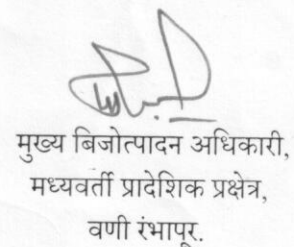 मुख्य बिजोत्पादन अधिकारी,
मध्यवर्ती प्रादेशिक प्रक्षेत्र,
वणी रंभापूर.